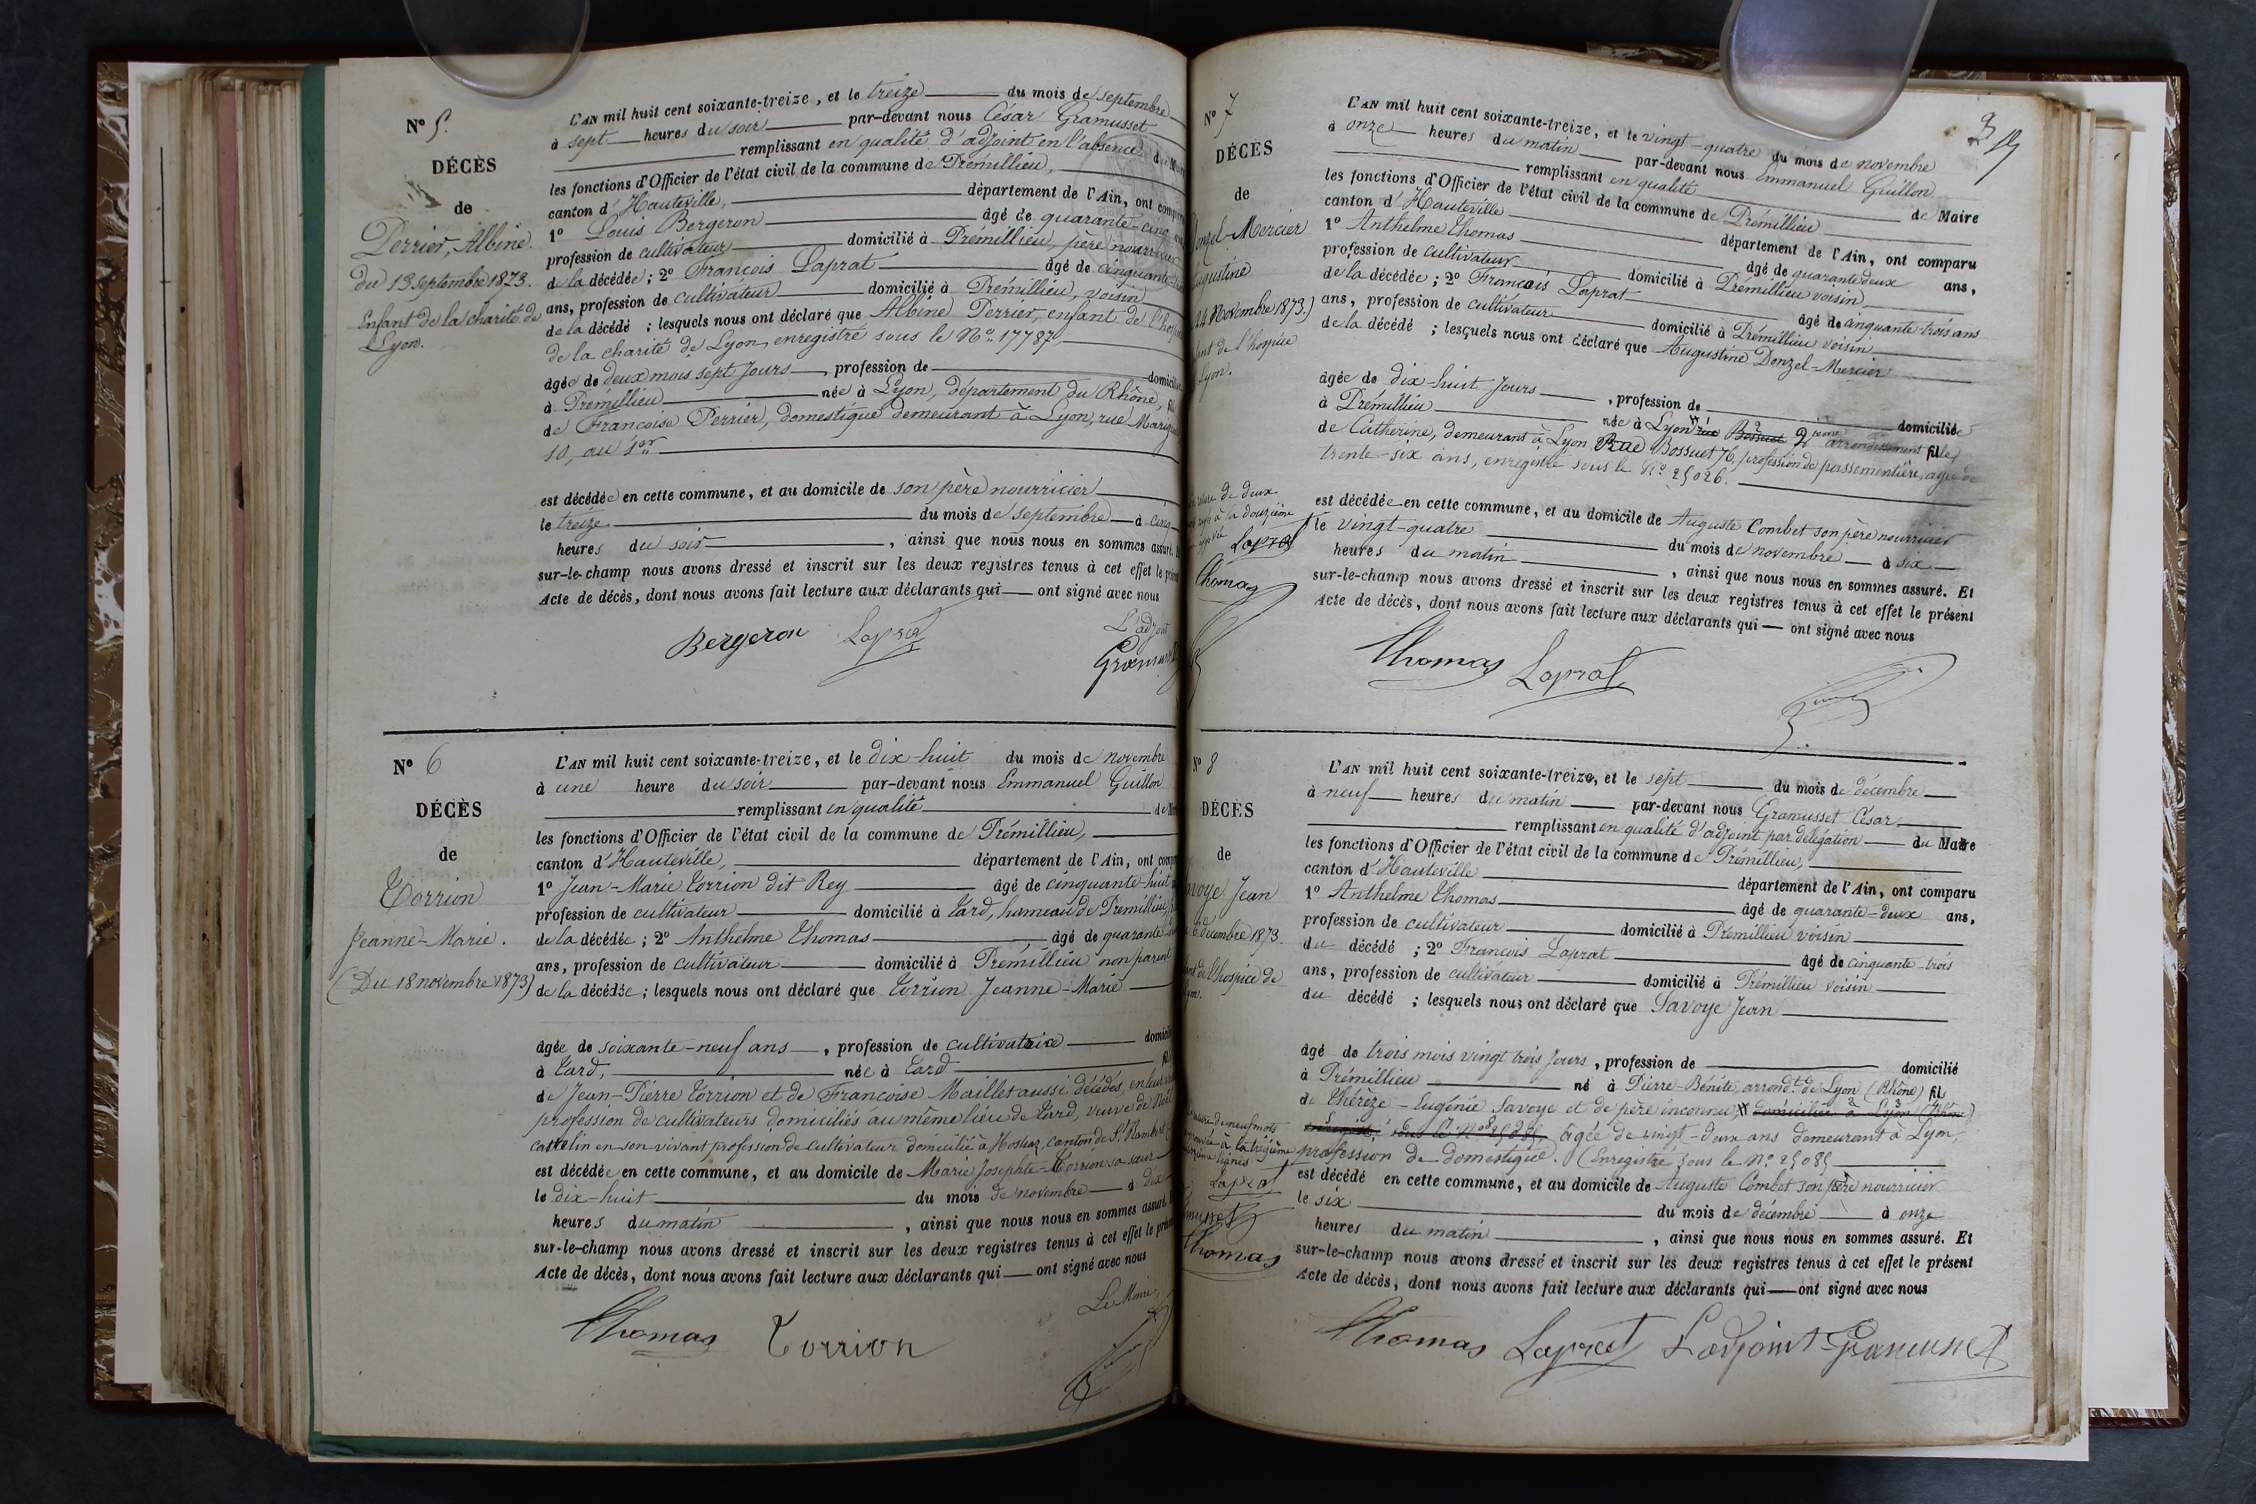 Nº 5.
DÉCÈS
de
Perrier, Albine.
du 13 septembre 1873.
Enfant de la charité de
Lyon.
L'AN mil huit cent soixante-treize, et le treize du mois de septembre
à sept heures du soir par-devant nous César Gramusset
remplissant en qualité d'adjoint en l'absence du
les fonctions d'Officier de l'état civil de la commune de Prémillieu,
canton d'Hauteville, département de l'Ain, ont
1º Louis Bergeron âgé de quarante-cinq
profession de cultivateur domicilié à Prémillieu, père nourricier
de la décédée; 2º François Laprat âgé de cinquante
ans, profession de cultivateur domicilié à Prémillieu, voisin
de la décédé ; lesquels nous ont déclaré que Albine Perrier, enfant de
de la charité de Lyon, enregistré sous le Nº 17787
âgée de deux mois sept jours, profession de
à Prémillieu née à Lyon, département du Rhône,
de Françoise Perrier, domestique demeurant à Lyon, rue
10, au 1er
est décédée en cette commune, et au domicile de son père nourricier
le treize du mois de septembre à cinq
heures du soir, ainsi que nous nous en sommes assuré.
sur-le-champ nous avons dressé et inscrit sur les deux registres tenus à cet effet le
Acte de décès, dont nous avons fait lecture aux déclarants qui ont signé avec nous
Bergeron Laprat
L'adjoint
Nº 6
DÉCÈS
de
Torrion
Jeanne-Marie.
(Du 18 novembre 1873)
L'AN mil huit cent soixante-treize, et le dix-huit du mois de novembre
à une heure du soir par-devant nous Emmanuel Guillon
remplissant en qualité
les fonctions d'Officier de l'état civil de la commune de Prémillieu,
canton d'Hauteville, département de l'Ain, ont
1º Jean-Marie Torrion dit Rey âgé de cinquante-huit
profession de cultivateur domicilié à Tard, hameau de Prémillieu,
de la décédée; 2º Anthelme Thomas âgé de quarante
ans, profession de cultivateur domicilié à Prémillieu non parent
de la décédée; lesquels nous ont déclaré que Torrion Jeanne-Marie
âgée de soixante-neuf ans, profession de cultivatrice
à Tard, née à Tard
de Jean-Pierre Torrion et de Françoise Maillet aussi décédés, en leur
profession de cultivateurs domiciliés au même lieu de Tard, veuve de
en son vivant profession de cultivateur domicilié à canton de St Rambert
est décédée en cette commune, et au domicile de Marie Josephte-Torrion sa sœur
le dix-huit du mois de novembre à dix
heures du matin, ainsi que nous nous en sommes
sur-le-champ nous avons dressé et inscrit sur les deux registres tenus à cet effet le
Acte de décès, dont nous avons fait lecture aux déclarants qui ont signé avec nous
Le Maire,
Thomas Torrion
Nº 7
DÉCÈS
de
Mercier
24 Novembre 1873.)
de l'hospice
Lyon.
de deux
à la douzième
Laprat
Thomas
L'AN mil huit cent soixante-treize, et le vingt-quatre du mois de novembre
à onze heures du matin par-devant nous Emmanuel Guillon
remplissant en qualité de Maire
les fonctions d'Officier de l'état civil de la commune de Prémillieu
canton d'Hauteville département de l'Ain, ont comparu
1º Anthelme Thomas âgé de quarante deux ans,
profession de cultivateur domicilié à Prémillieu voisin
de la décédée; 2º François Laprat âgé de cinquante-trois ans
ans, profession de cultivateur domicilié à Prémillieu voisin
de la décédé ; lesquels nous ont déclaré que Augustine Donzel-Mercier
âgée de dix-huit jours, profession de domiciliée
à Prémillieu née à Lyon rue Bossuet 2ieme arrondissement fille
de Catherine, demeurant à Lyon Rue Bossuet 76, profession de passementière, agée de
trente-six ans, enregistré sous le Nº 25026.
est décédée en cette commune, et au domicile de Auguste Combet son père nourricier
le vingt-quatre du mois de novembre à six
heures du matin, ainsi que nous nous en sommes assuré. Et
sur-le-champ nous avons dressé et inscrit sur les deux registres tenus à cet effet le présent
Acte de décès, dont nous avons fait lecture aux déclarants qui ont signé avec nous
Thomas Laprat
Nº 8
DÉCÈS
de
Jean
6 décembre 1873.
de l'hospice de
de neuf mots
à la treizième
lignes
Laprat
Thomas
L'AN mil huit cent soixante-treize, et le sept du mois de décembre
à neuf heures du matin par-devant nous Gramusset César
remplissant en qualité d'adjoint par délégation du Maire
les fonctions d'Officier de l'état civil de la commune de Prémillieu,
canton d'Hauteville département de l'Ain, ont comparu
1º Anthelme Thomas âgé de quarante-deux ans,
profession de cultivateur domicilié à Prémillieu voisin
du décédé ; 2º François Laprat âgé de cinquante-trois
ans, profession de cultivateur domicilié à Prémillieu voisin
du décédé ; lesquels nous ont déclaré que Savoye Jean
âgé de trois mois vingt trois jours, profession de domicilié
à Prémillieu né à Pierre-Bénite, arrondt de Lyon (Rhône) fil
de Thérèze-Eugénie Savoye et de père inconnu domiciliée à Lyon (Rhône)
sous le Nº âgée de vingt-deux ans demeurant à Lyon,
profession de domestique. (Enregistré sous le Nº 25085
est décédé en cette commune, et au domicile de Auguste Combet son père nourricier
le six du mois de décembre à onze
heures du matin, ainsi que nous nous en sommes assuré. Et
sur-le-champ nous avons dressé et inscrit sur les deux registres tenus à cet effet le présent
Acte de décès, dont nous avons fait lecture aux déclarants qui ont signé avec nous
Thomas Laprat L'adjoint Gramusset